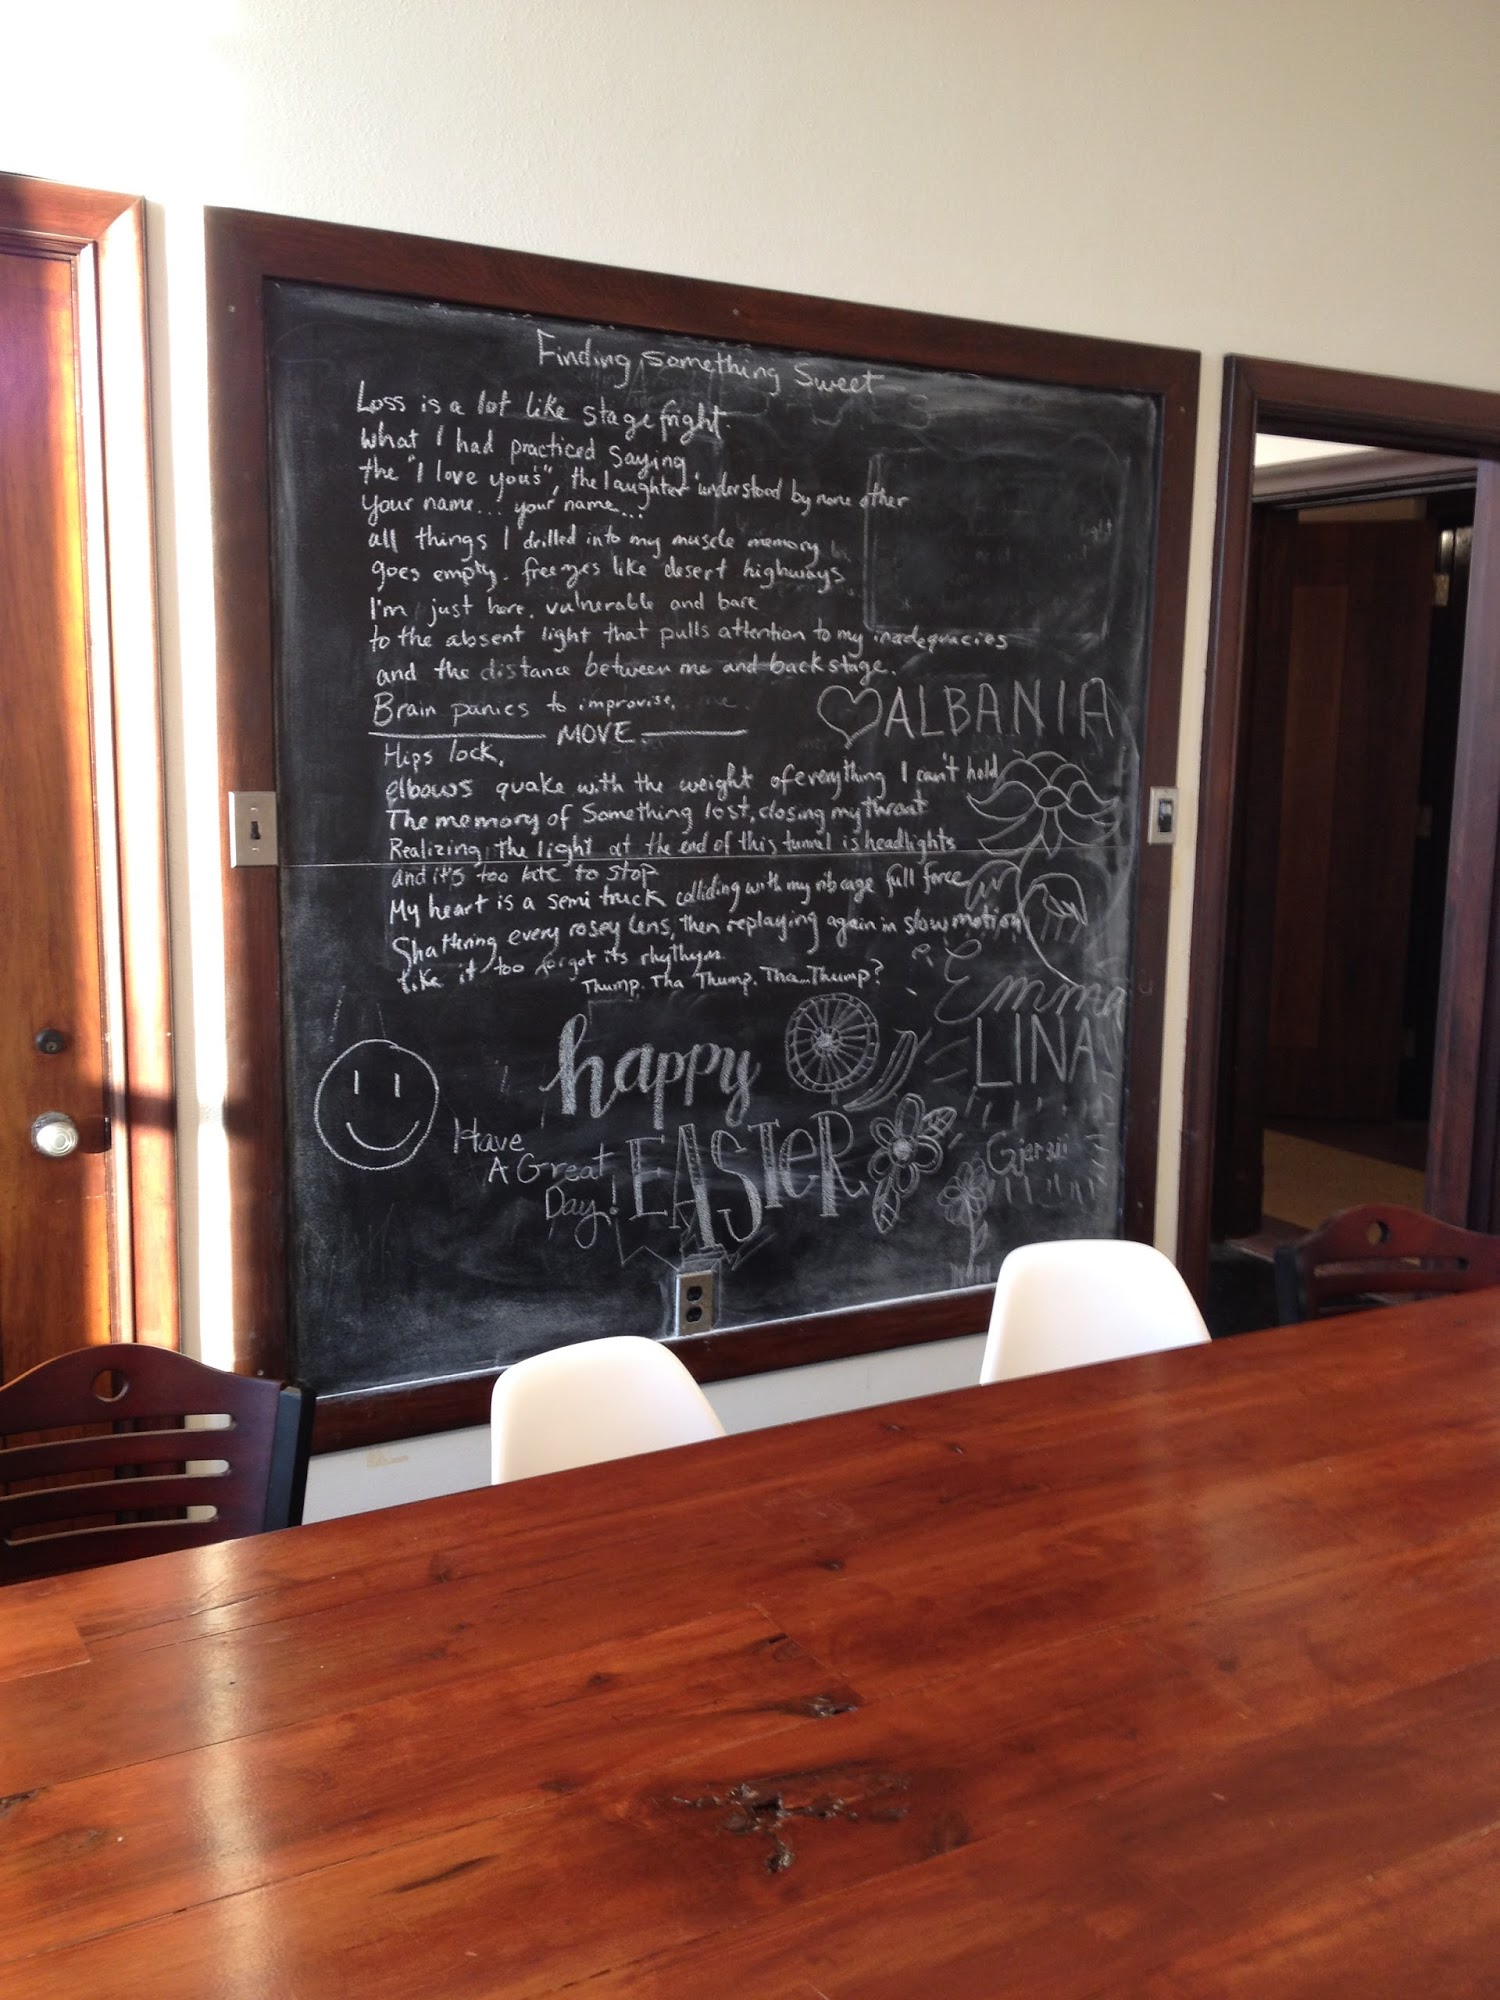 Finding Something Sweet
Loss is a lot like stage fright.
What I had practiced saying
the "I love you's", the laughter understood by none other
Your name... your name...
all things I drilled into my muscle memory
goes empty. freezes like desert highways.
I'm just here, vulnerable and bare
to the absent light that pulls attention to my inadequacies
and the distance between me and backstage.
Brain panics to improvise.
MOVE
♡ ALBANIA
Hips lock,
elbows quake with the weight of everything I can't hold
The memory of Something lost, closing my throat
Realizing the light at the end of this tunnel is headlights
and it's too late to stop
My heart is a semi truck colliding with my ribcage full force
Shattering every rosey lens, then replaying again in slow motion
like it too forgot its rhythym.
Thump. Tha Thump. Tha...Thump?
Emma
LINA
happy
EASTER
Have
A Great
Day!